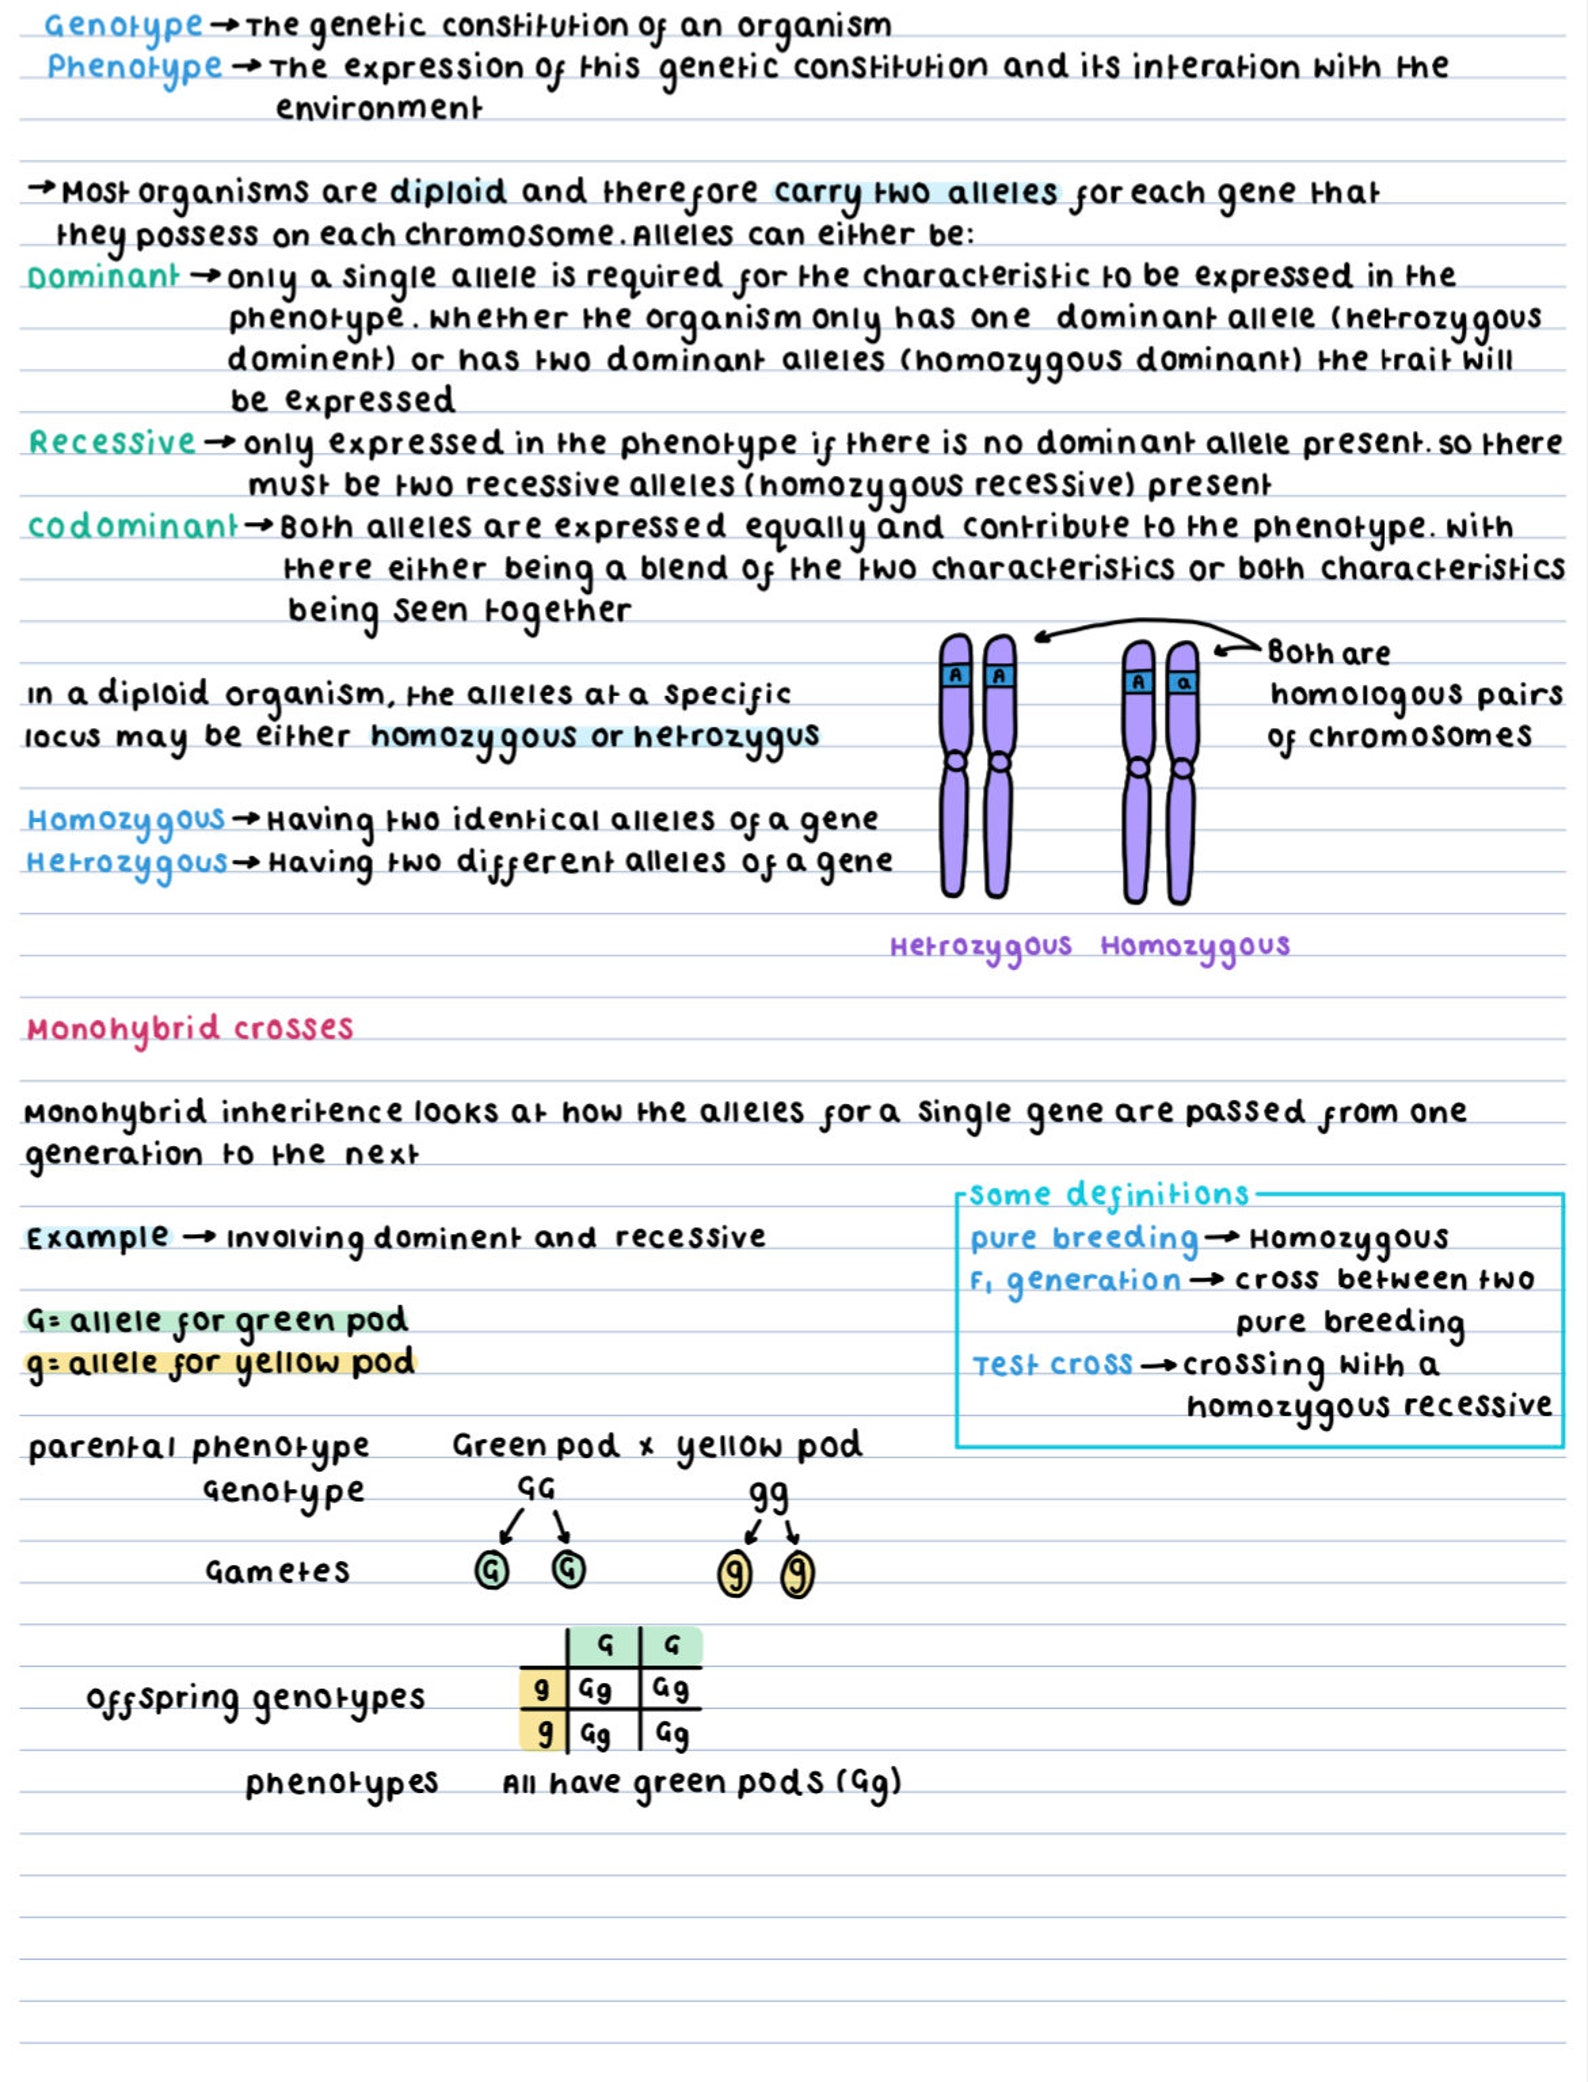 Genotype → The genetic constitution of an organism
Phenotype → The expression of this genetic constitution and its interation with the
environment
→ Most organisms are diploid and therefore carry two alleles for each gene that
they possess on each chromosome. Alleles can either be:
Dominant → only a single allele is required for the characteristic to be expressed in the
phenotype. Whether the organism only has one dominant allele (hetrozygous
dominent) or has two dominant alleles (homozygous dominant) the trait will
be expressed
Recessive → only expressed in the phenotype if there is no dominant allele present. so there
must be two recessive alleles (homozygous recessive) present
codominant → Both alleles are expressed equally and contribute to the phenotype. With
there either being a blend of the two characteristics or both characteristics
being seen together
A A A a
Both are
homologous pairs
of chromosomes
In a diploid organism, the alleles at a specific
locus may be either homozygous or hetrozygus
Homozygous → Having two identical alleles of a gene
Hetrozygous → Having two different alleles of a gene
Hetrozygous Homozygous
Monohybrid crosses
Monohybrid inheritence looks at how the alleles for a single gene are passed from one
generation to the next
Example → Involving dominent and recessive
G= allele for green pod
g= allele for yellow pod
Some definitions
pure breeding → Homozygous
F₁ generation → cross between two
pure breeding
Test cross → crossing with a
homozygous recessive
parental phenotype Green pod x yellow pod
Genotype GG gg
Gametes G G g g
G G
g Gg Gg
offspring genotypes
g Gg Gg
phenotypes All have green pods (Gg)